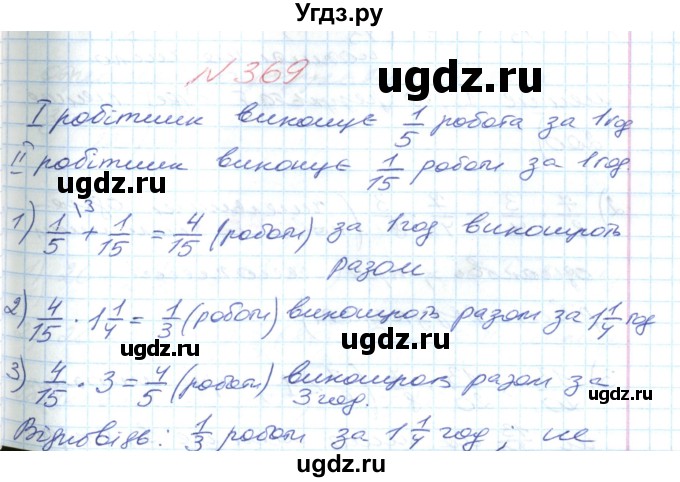 Угдз.ру
№ 369
ugdz.ru
ugdz.ru
I робітник виконує 1/5 робота за 1 год
II робітник виконує 1/15 роботи за 1 год.
ugdz.ru
ugdz.ru
1) 1/5 \3 + 1/15 = 4/15 (роботи) за 1 год виконують
разом
ugdz.ru
2) 4/15 · 1 1/4 = 1/3 (роботи) виконують разом за 1 1/4 год
ugdz.ru
ugdz.ru
3) 4/15 · 3 = 4/5 (роботи) виконують разом за
3 год.
ugdz.ru
Відповідь: 1/3 роботи за 1 1/4 год; не
ugdz.ru
ugdz.ru